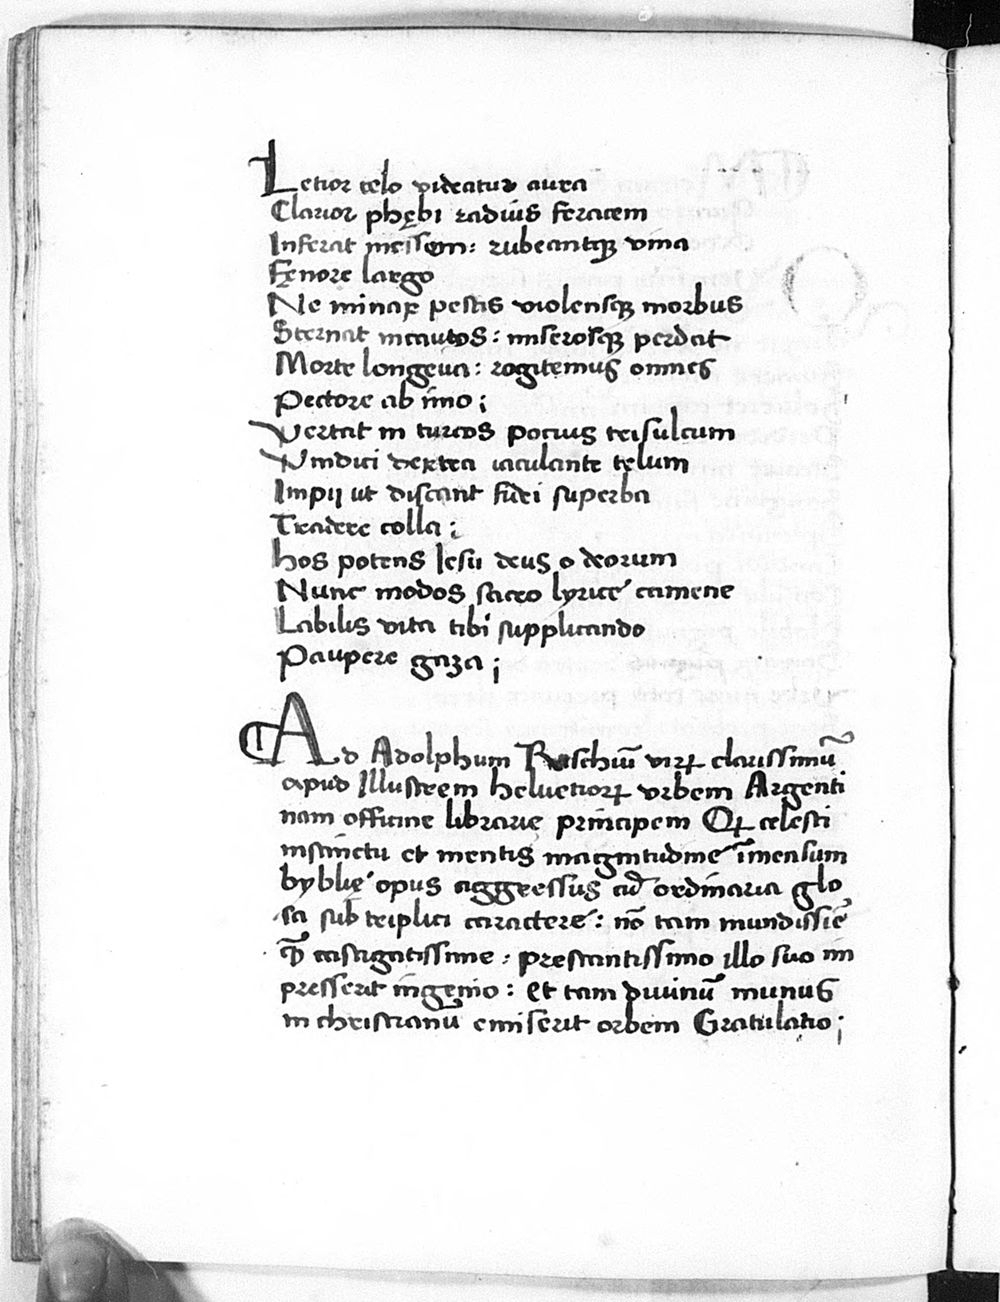 Letior celo videatur aura
Clarior phębi radius feracem
Inferat messem: rubeantqꝫ vina
Fęnore largo
Ne minax pestis violensqꝫ morbus
Sternat incautos: miserosqꝫ perdat
Morte longeua: rogitemus omnes
Pectore ab imo;
Vertat in turcos pocius trisulcum
Vindici dextra iaculante tęlum
Impij ut discant fidei superba
Tradere colla;
Hos potens Iesu deus o deorum
Nunc modos sacro lyricę camene
Labilis vita tibi supplicando
Paupere gaza;
Ad Adolphum Ruschiū virꝝ clarissimū
apud Illustrem helvetiorꝝ vrbem Argenti
nam officine librarię principem Qꝝ celesti
instinctu et mentis magnitudine īmensum
byblię opus aggressus ad ordinaria glo
sa sub triplici caractere: nō tam mundissīe
qͫ castigatissime: prestantissimo illo suo im
presserit ingenio: et tam diuinū munus
in christianū emiserit orbem Gratulatio;